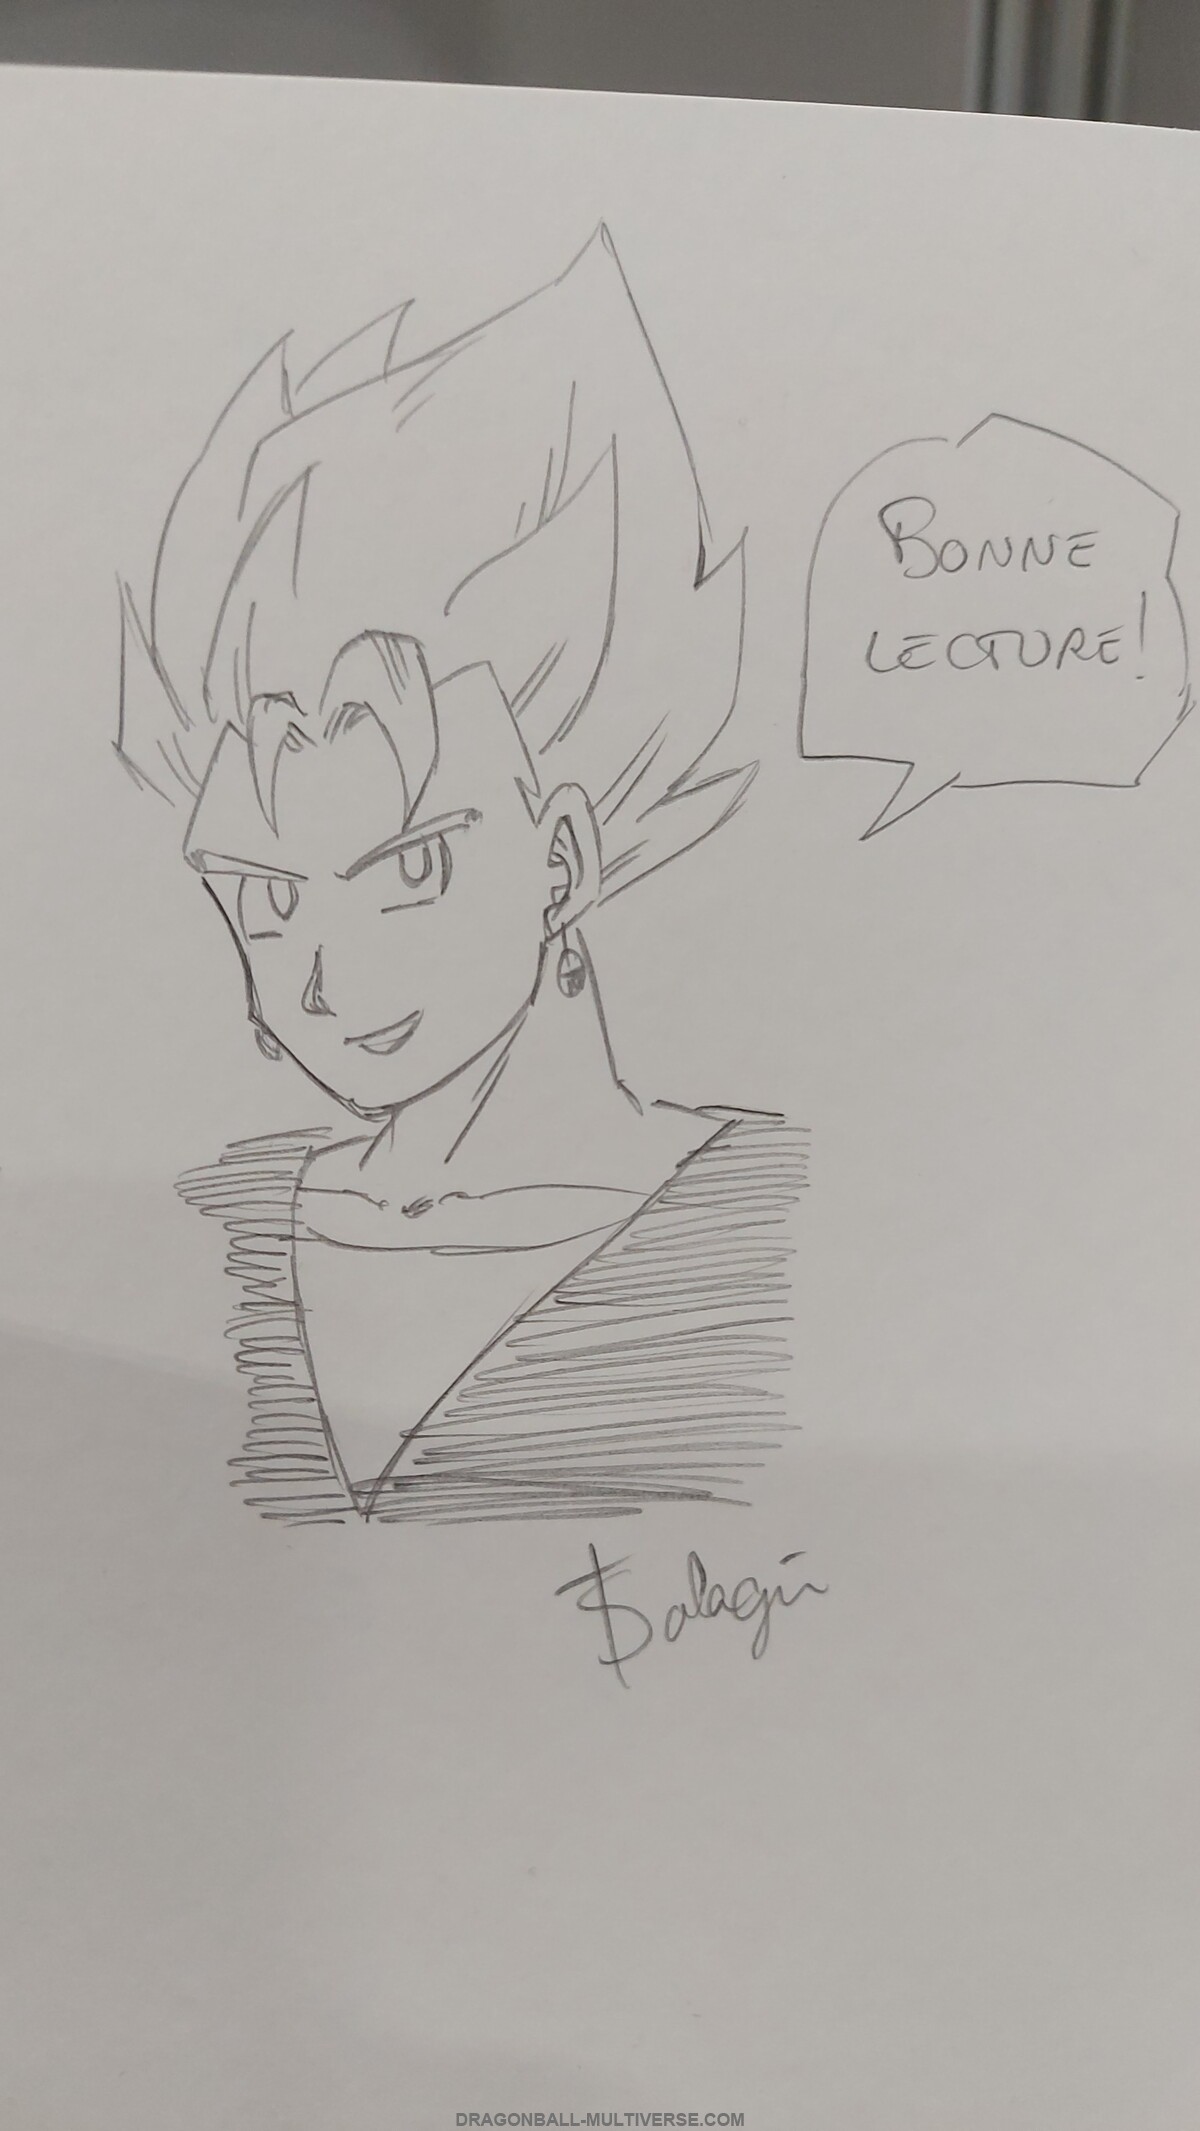 BONNE
LECTURE!
Salagir
DRAGONBALL-MULTIVERSE.COM